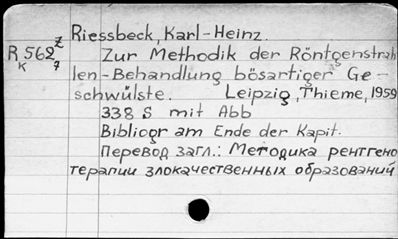 Riessbeck, Karl-Heinz.
R 562 z
к 7
Zur Methodik der Röntgenstrah
len-Behandlung bösartiger Ge-
schwülste. Leipzig, Thieme, 1959
338 S mit Abb
Bibliogr am Ende der Kapit.
Перевод загл.: Методика рентгено
терапии злокачественных образований